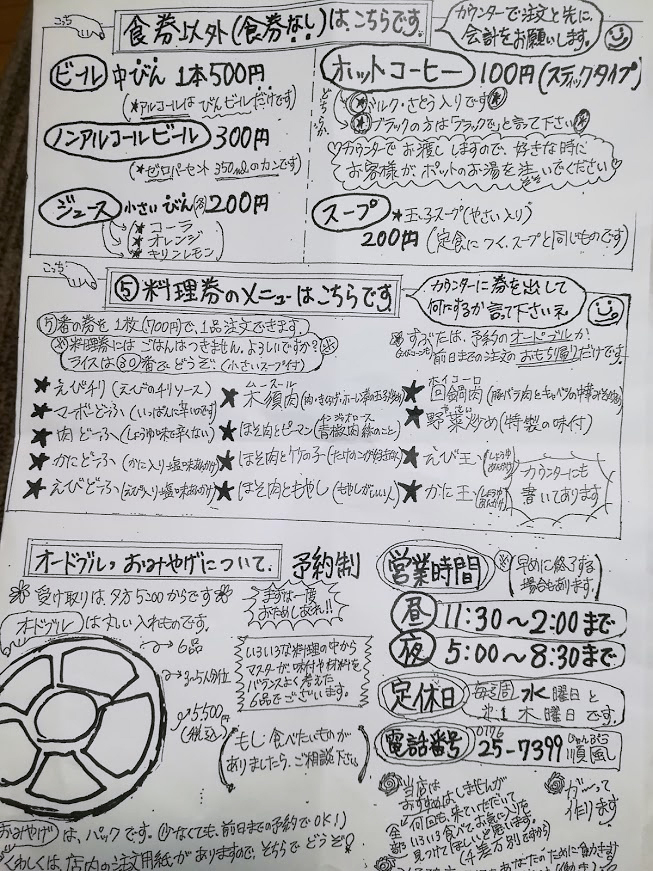 こっち
食券以外(食券なし)は、こちらです。
カウンターで注文と先に、
会計をお願いします。
ビール 中びん 1本500円
(*アルコールは びんビールだけです)
ノンアルコールビール 300円
(*ゼロパーセント 350mlのカンです)
ジュース 小さい びん(各)200円
* コーラ
* オレンジ
* キリンレモン
ホットコーヒー 100円(スティックタイプ)
どちらか
*ミルク・さとう入りです*
*ブラックの方は「ブラックで」と言って下さい*
♡カウンターで お渡し しますので、好きな時に
お客様が、ポットのお湯を注いでください♡
スープ *玉子スープ(やさい入り)
200円(定食に つく、スープと同じものです)
こっち
⑤料理券のメニューはこちらです。
カウンターに券を出して
何にするか言って下さいネ
⑤番の券を1枚(700円)で、1品注文できます。
※料理券には ごはんはつきません。よろしいですか?※
ライスは㉚番でどうぞ。(小さいスープ付)
※すぶたは、予約のオードブルか
前日までの注文の おもち帰りだけです。
★えびチリ(えびのチリソース)
★マーボーどうふ(いっぱんに辛いです)
★肉どうふ(しょうゆ味で辛くない)
★かにどうふ(かに入り・塩味あんかけ)
★えびどうふ(えび入り・塩味あんかけ)
ムースール
★木須肉
チンジャオロース
★ほそ肉とピーマン(青椒肉絲のこと)
★ほそ肉とタケノ子(たけのこが好きなら)
★ほそ肉ともやし(もやしがいい人)
ホイコーロ
★回鍋肉(豚バラ肉とキャベツの中華みそ炒め)
★野菜炒め(特製の味付)
★えび玉(しょうゆあんかけ)
★かに玉(しょうゆあんかけ)
カウンターにも
書いてあります
オードブル、おみやげについて、 予約制
※受け取りは、夕方5:00からです※
まずは一度
おためしあれ!!
オードブルは丸い入れものです。
6品
3~5人分位
5,500円
(税込)
いろいろな料理の中から
マスターが、味付や材料を
バランスよく考えた
6品でございます。
もし、食べたいものが
ありましたら、ご相談下さい
おみやげは、パックです。(少なくても、前日までの予約でOK!)
くわしくは、店内の注文用紙が ありますので、そちらで どうぞ
営業時間
※(早めに終了する
場合もあります。)
昼 11:30~2:00まで
夜 5:00~8:30まで
定休日 毎週水曜日と
第1木曜日です。
電話番号 0176 25-7399 じゅんぷう 順風
当店は
おすすめはしませんが
何回も、来ていただいて
いろいろ食べて、お気に入りを
見つけてほしいと思います。
(千差万別ですから)
ガーって
作ります